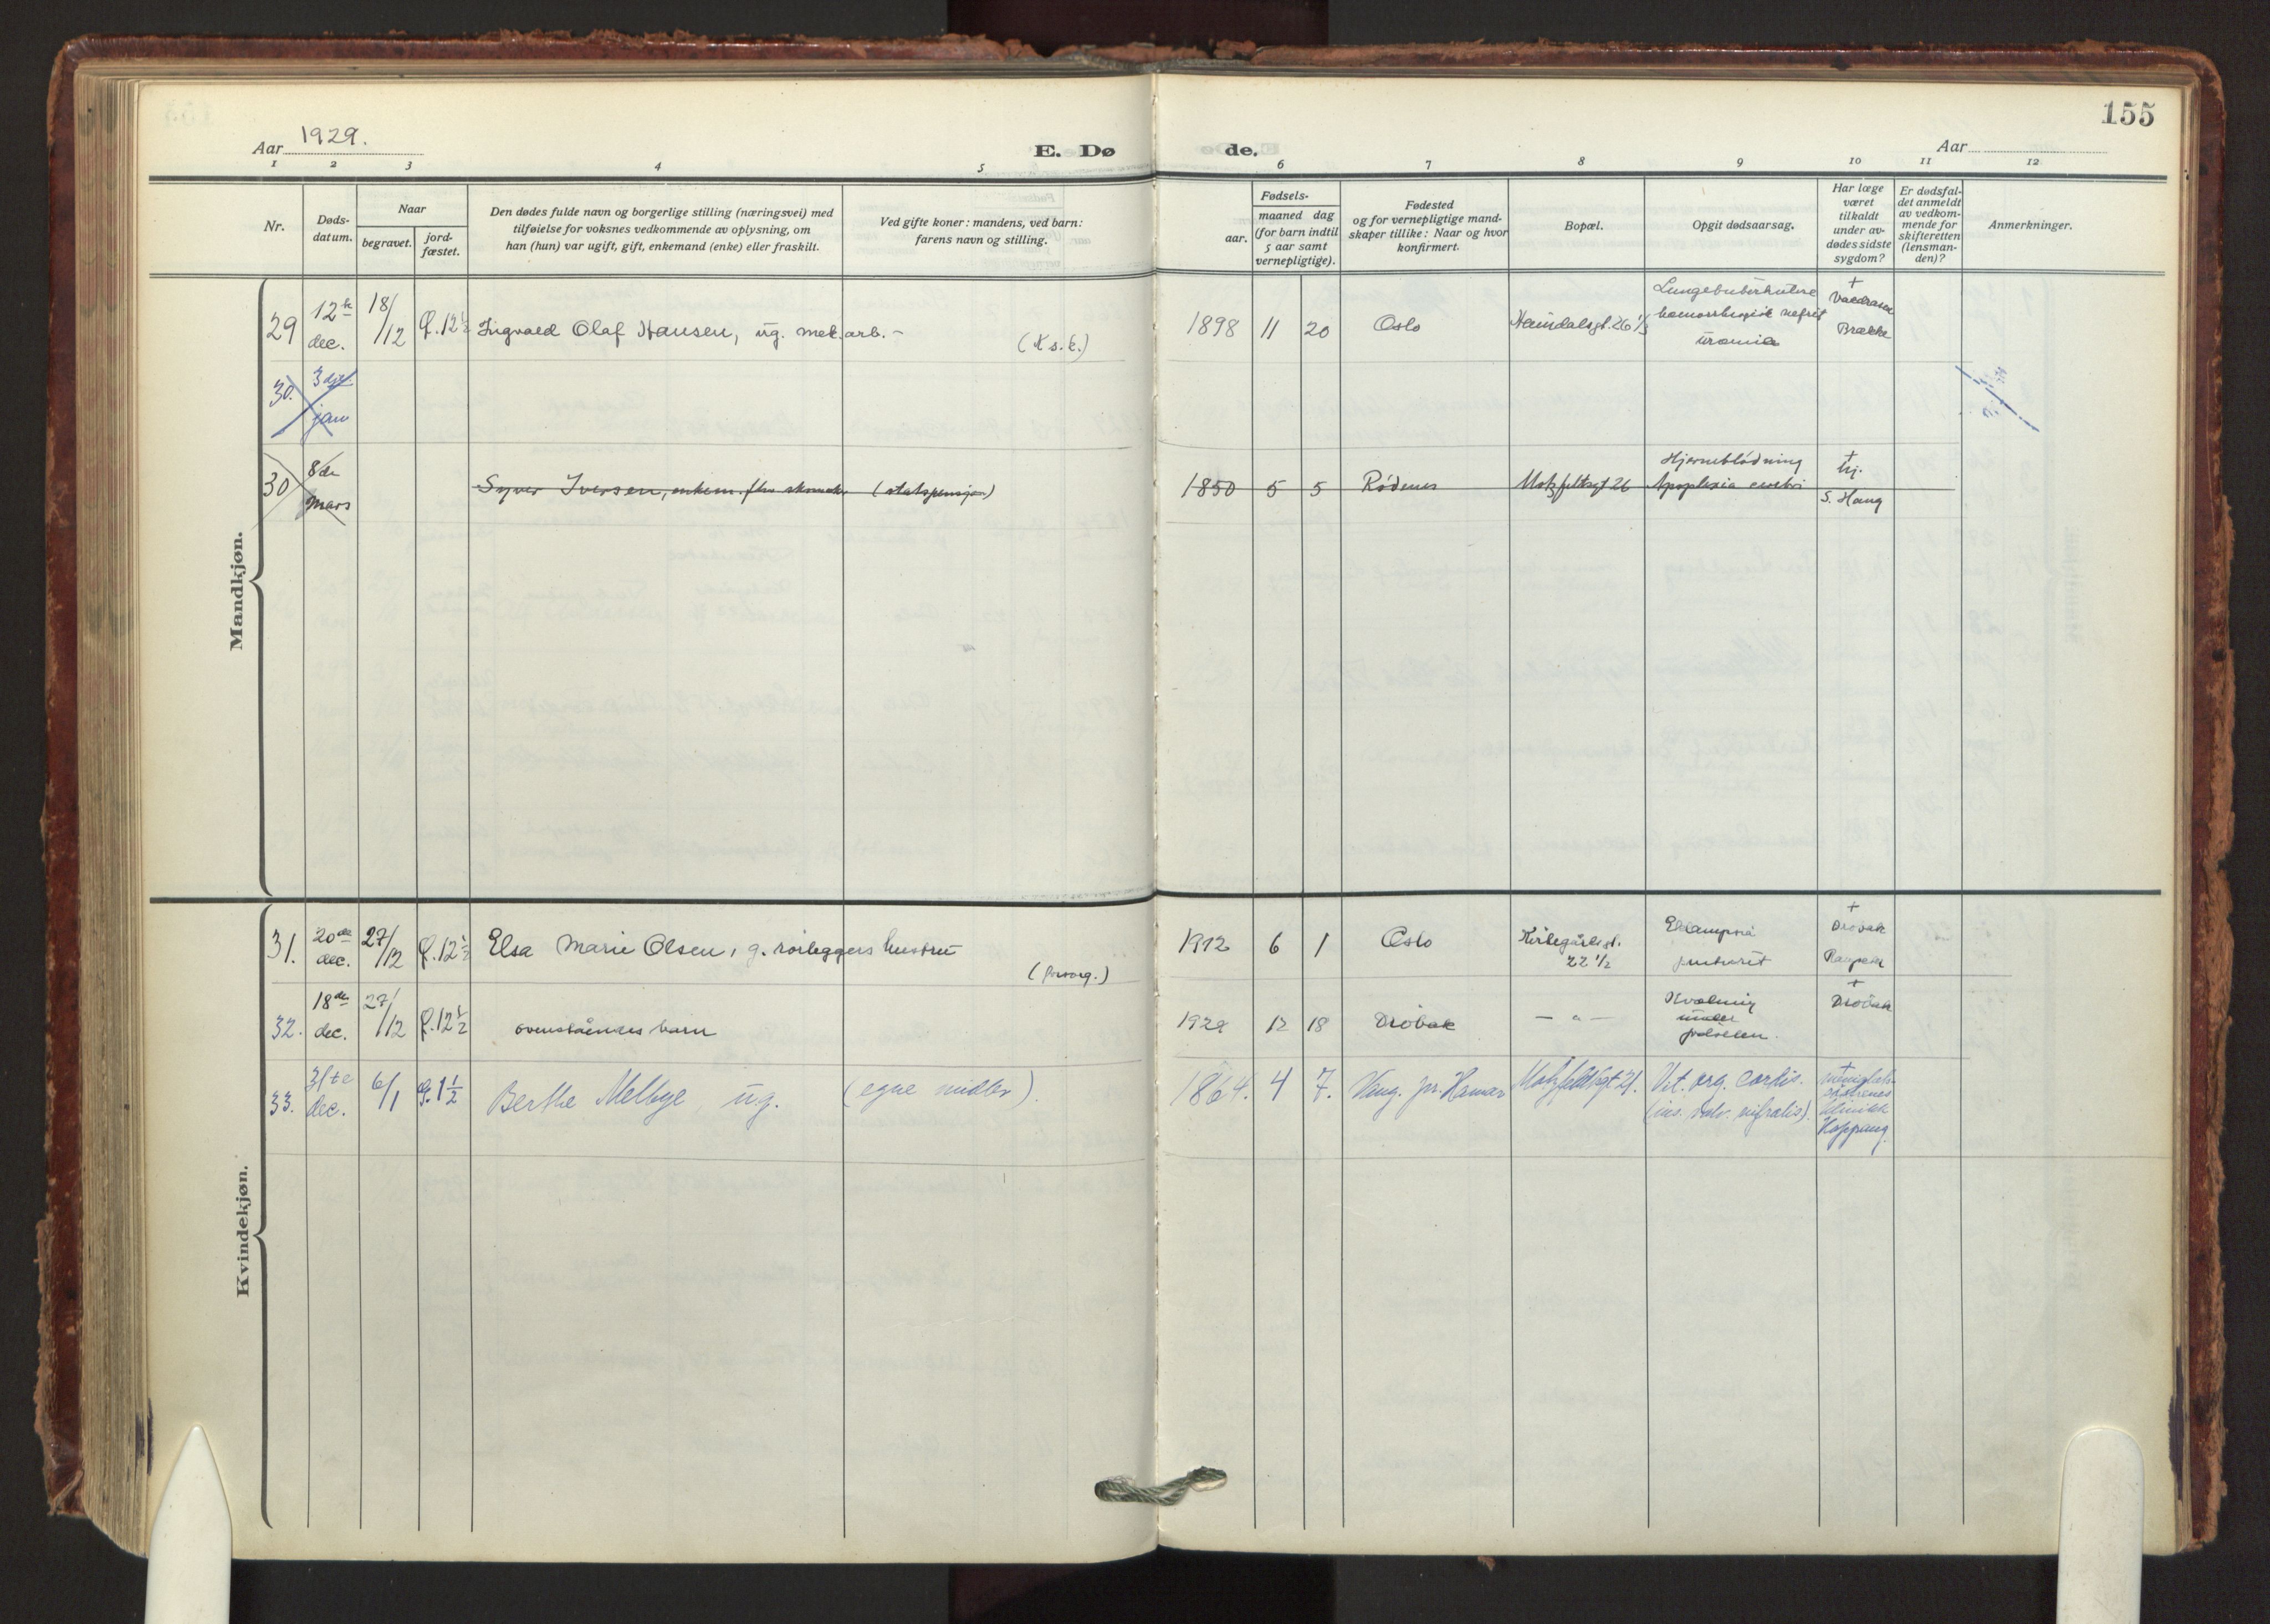 155
Aar 1929.
E. Døde.
Aar
1 2 3 4 5 6 7 8 9 10 11 12
Nr.
Døds-
datum.
Naar
begravet.
jord-
fæstet.
Den dødes fulde navn og borgerlige stilling (næringsvei) med
tilføielse for voksnes vedkommende av oplysning, om
han (hun) var ugift, gift, enkemand (enke) eller fraskilt.
Ved gifte koner: mandens, ved barn:
farens navn og stilling.
Fødsels-
aar.
maaned dag
(for barn indtil
5 aar samt
vernepligtige).
Fødested
og for vernepligtige mand-
skaper tillike: Naar og hvor
konfirmert.
Bopæl.
Opgit dødsaarsag.
Har læge
været
tilkaldt
under av-
dødes sidste
sygdom?
Er dødsfal-
det anmeldt
av vedkom-
mende for
skifteretten
(lensman-
den)?
Anmerkninger.
Mandkjøn.
29 12te dec. 18/12 12½ Ingvald Olaf Hansen, ug. mek. arb. - 1898 11 20 Oslo Heimdalsgt. 26 Lungetuberkulose
nefrit
Uræmia
+
Brække
30. 3dje jan
30 8de Mars Syver Iversen, enkem. (statspensjon) 1850 5 5 Rødenes Motzfeldtsgt 26 Hjerneblødning
Apoplexia cerebri
+
hj.
S. Haug
Kvindekjøn.
31. 20de dec. 27/12 12½ Elsa Marie Olsen, g. rørleggers hustru (forsorg.) 1912 6 1 Oslo Kirkegårdsgt. 22 ½ Eclampsia
+
32. 18de dec. 27/12 12½ ovenståendes barn 1929 12 18 Drøbak — " — Kvælning
under
fødselen.
+
Drøbak
33. 31te dec. 6/1 1½ Berthe Melbye ug. (egne midler). 1864. 4 7. Vang pr. Hamar Motzfeldtsgt 21. Vit. org. cordis.
(ins. valv. mitralis).
+
Menighets-
søstrenes
klinikk
Koppang.